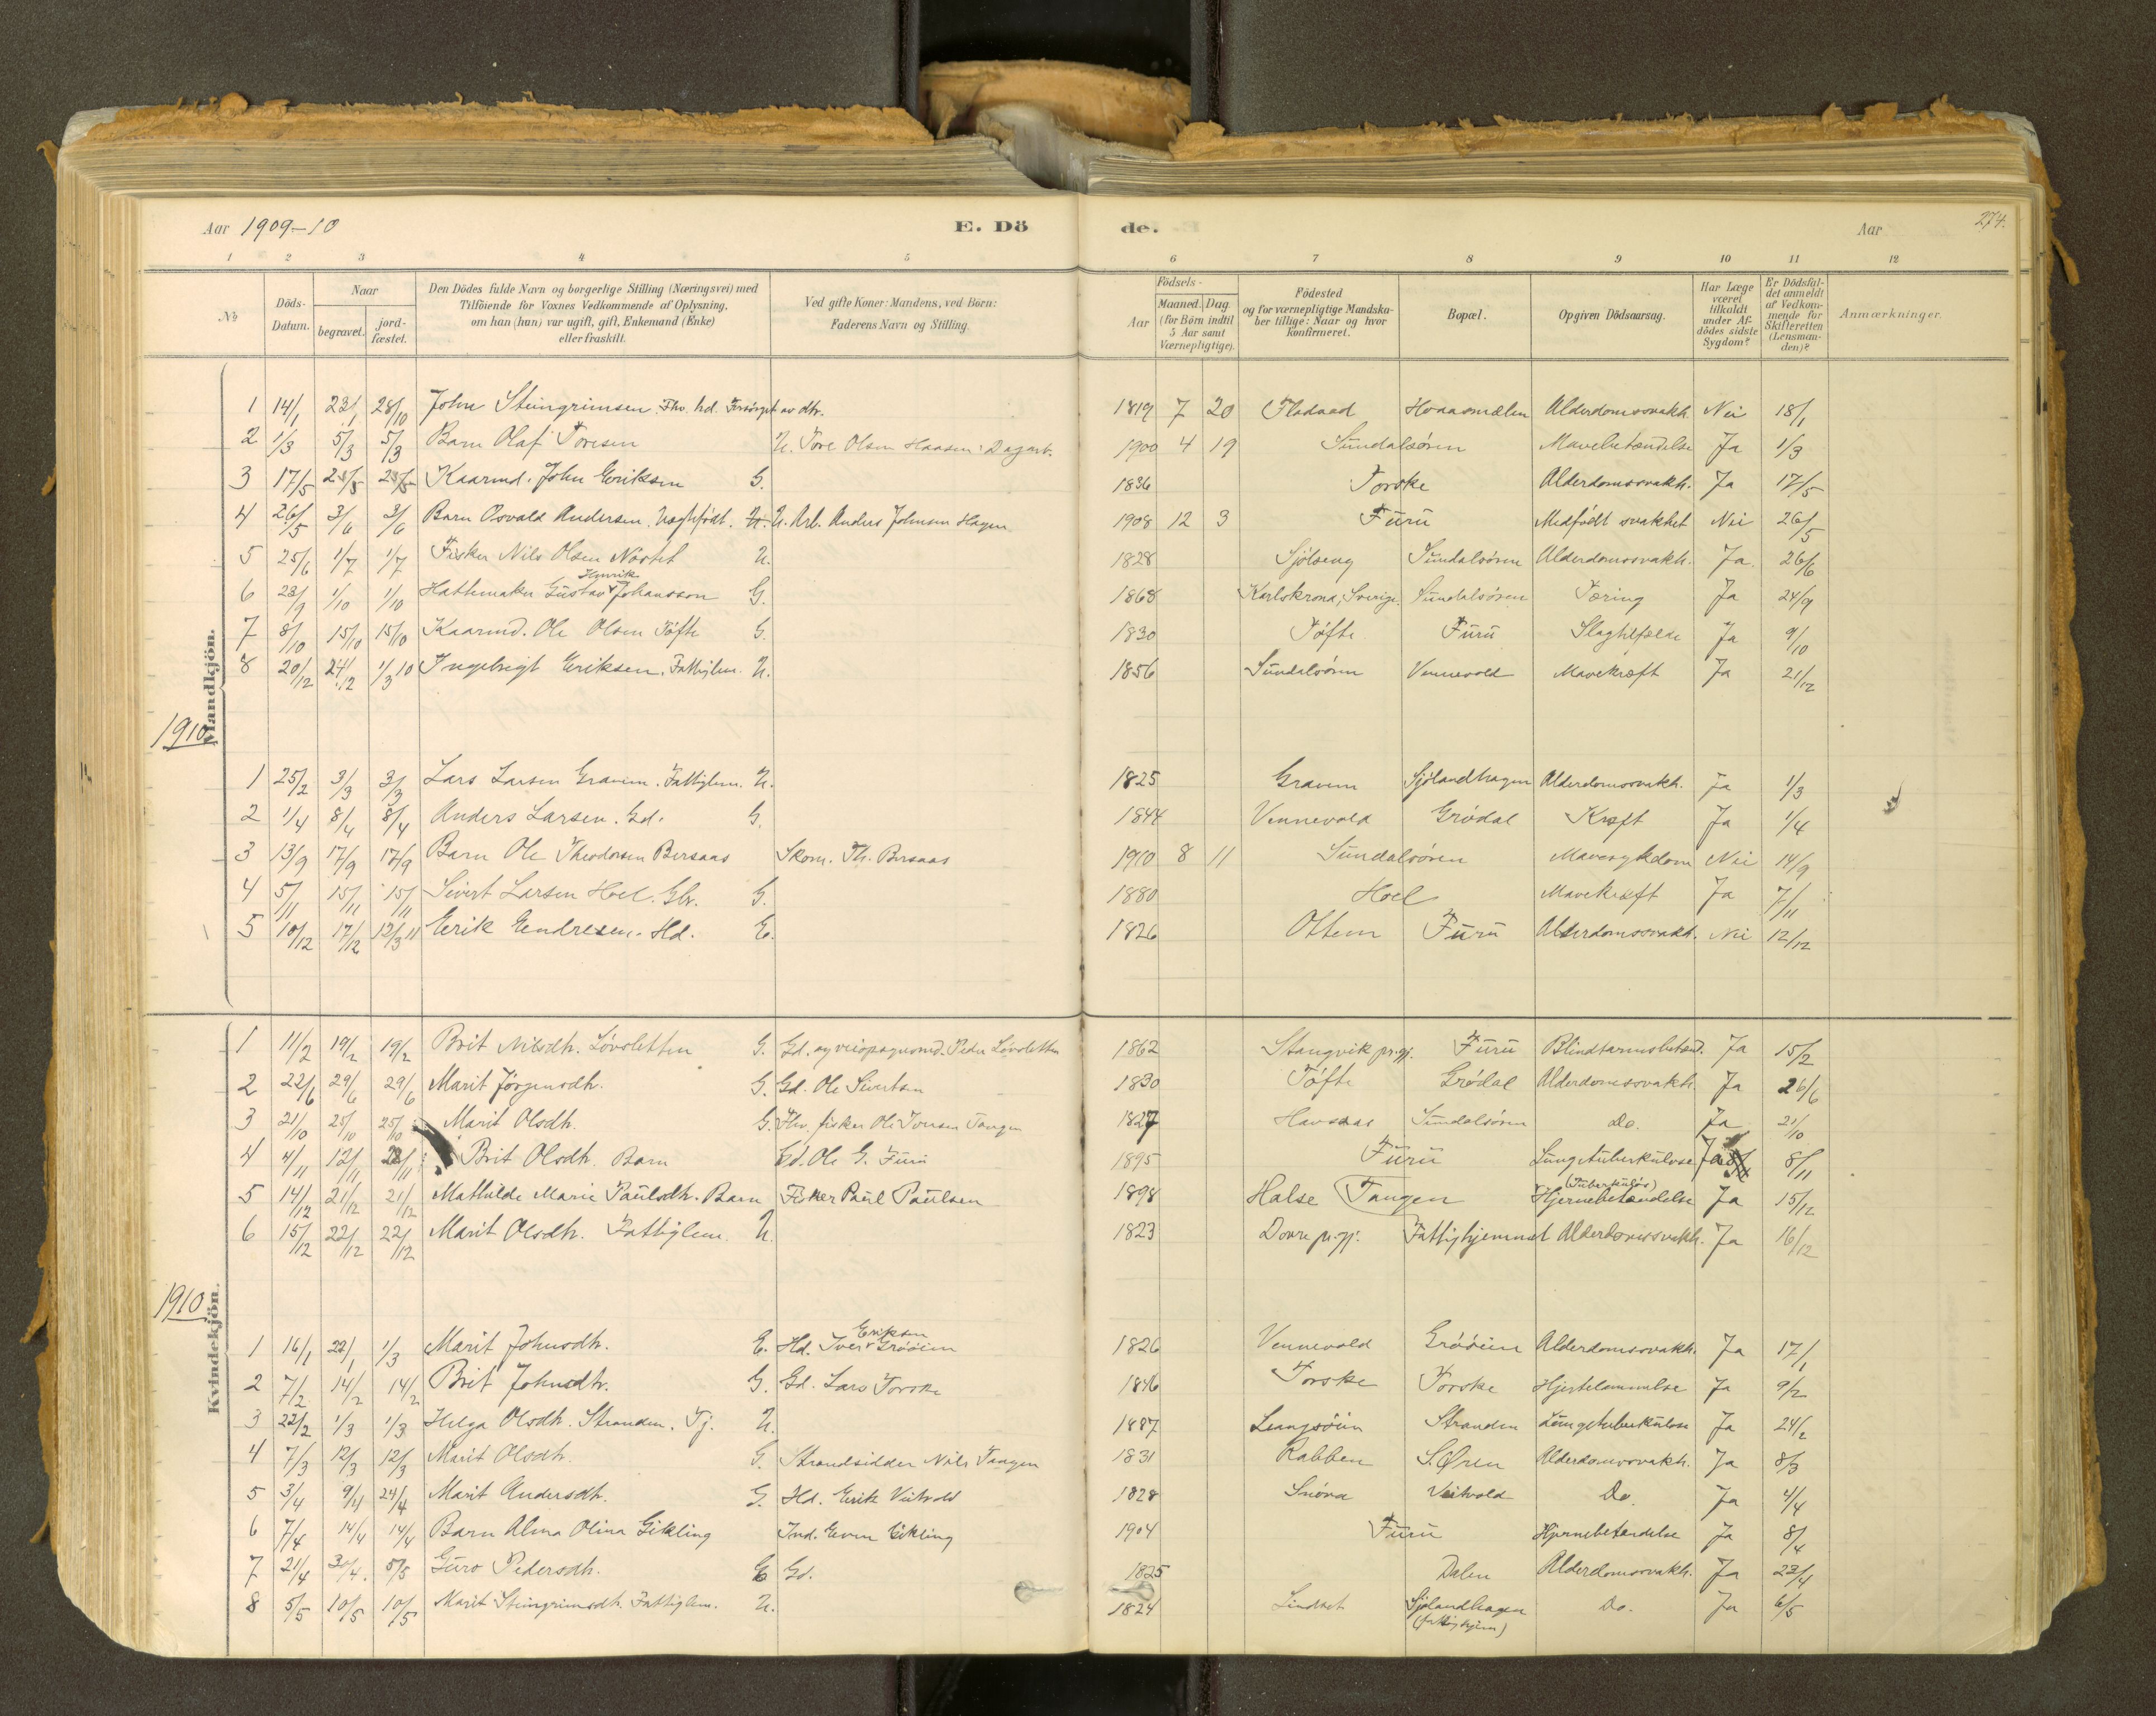 Aar 1909-10 E. Döde. Aar 274.
1 2 3 4 5 6 7 8 9 10 11 12
№ Döds-Datum. Naar begravet. jordfæstet. Den Dödes fulde Navn og borgerlige Stilling (Næringsvei) med Tilföiende for Voxnes Vedkommende af Oplysning, om han (hun) var ugift, gift, Enkemand (Enke) eller fraskilt. Ved gifte Koner: Mandens, ved Börn: Faderens Navn og Stilling. Födsels- Aar Maaned. Dag. (for Börn indtil 5 Aar samt Værnepligtige). Födested og for værnepligtige Mandskaber tillige: Naar og hvor konfirmeret. Bopæl. Opgiven Dödsaarsag. Har Læge været tilkaldt under Afdödes sidste Sygdom? Er Dödsfaldet anmeldt af Vedkommende for Skifteretten (Lensmanden)? Anmærkninger.
Mandkjön.
1 14/1 23/1 28/10 John Steingrimsen. Fhv. hd. Forsörget av dtr. 1819 7 20 Fladvad Hoaasmælen Alderdomssvakh. Nei 18/1
2 1/3 5/3 5/3 Barn Olaf Toresen U. Tore Olsen Haasen: Dagarb. 1900 4 19 Sundalsören Mavebetændelse Ja 1/3
3 17/5 23/5 23/5 Kaarmd. John Eriksen G. 1836 Torske Alderdomssvakh. Ja 17/5
4 26/5 3/6 3/6 Barn Osvald Andersen, uægtefödt. U. U. Arb. Anders Johnsen Hagen 1908 12 3 Furu Medfödt svakhet Nei 26/5
5 25/6 1/7 1/7 Fisker Nils Olsen Nöstet U. 1828 Sjölseng Sundalsören Alderdomssvakh. Ja. 26/6
6 23/9 1/10 1/10 Hattemaker Gustav Henrik Johansson G. 1868 Karlskrona, Sverige. Sundalsören Tæring Ja 24/9
7 8/10 15/10 15/10 Kaarmd. Ole Olsen Töfte G. 1830 Töfte Furu Slagtilfælde Ja 9/10
8 20/12 24/12 1/3 10 Ingebrigt Eriksen. Fattiglem. U. 1856 Sundalsören Vennevold Mavekræft Ja 21/12
1910.
1 25/2 3/3 3/3 Lars Larsen Gravem. Fattiglem. U. 1825 Gravem Sjölandhagen Alderdomssvakh. Ja 1/3
2 1/4 8/4 8/4 Anders Larsen. Gd. G. 1844 Vennevold Grödal Kræft Ja 1/4
3 13/9 17/9 17/9 Barn Ole Theodorsen Bersaas Skom. Th. Bersaas 1910 8 11 Sundalsören Mavesykdom Nei 14/9
4 5/11 15/11 15/11 Sivert Larsen Hoel. Gbr. G. 1880 Hoel Mavekræft Ja 7/11
5 10/12 17/12 12/3 11 Erik Endresen. Hd. E. 1826 Ottem Furu Alderdomssvakh. Nei 12/12
Kvindekjön.
1 11/2 19/2 19/2 Brit Nilsdtr. Lövsletten G. Gd. og veiopsynsmd. Peder Lövsletten 1862 Stangvik pr.gj. Furu Blindtarmsbetænd. Ja 15/2
2 22/6 29/6 29/6 Marit Jörgensdtr. G. Gd. Ole Sivertsen 1830 Töfte Grödal Alderdomssvakh. Ja 26/6
3 21/10 25/10 25/10 Marit Olsdtr. G. Fhv. fisker Ole Iversen Tangen 1827 Havsaas Sundalsören Do. Ja 21/10
4 4/11 12/11 Brit Olsdtr. Barn Gd. Ole G. Furu 1895 Furu Lungetuberkulose Ja 8/11
5 14/12 21/12 21/12 Mathilde Marie Paulsdtr. Barn Fisker Paul Paulsen 1898 Halse Tangen (Tuberkulös) Hjernebetændelse Ja 15/12
6 15/12 22/12 22/12 Marit Olsdtr. Fattiglem. U. 1823 Dovre pr.gj. Fattighjemmet Alderdomssvakh. Ja 16/12
1910
1 16/1 22/1 1/3 Marit Johnsdtr. E. Hd. Iver Eriksen Gröóien 1826 Vennevold Gröóien Alderdomssvakh. Ja 17/1
2 7/2 14/2 14/2 Brit Johnsdtr. G. Gd. Lars Torske 1846 Torske Torske Hjertelammelse Ja 9/2
3 22/2 1/3 1/3 Helga Olsdtr. Stranden. Tj. U. 1887 Leangsöien Stranden Lungetuberkulose Ja 24/2
4 7/3 12/3 12/3 Marit Olsdtr. G. Strandsidder Nils Tangen 1831 Rabben S.Ören Alderdomssvakh. Ja 8/3
5 3/4 9/4 24/4 Marit Andersdtr. G. Hd. Erik Veitvold 1828 Snöva Veitvold Do. Ja 4/4
6 7/4 14/4 14/4 Barn Alma Olina Eikling Ind. Even Eikling 1904 Furu Hjernebetændelse Ja 8/4
7 21/4 30/4. 5/5 Guro Pedersdtr. E Gd. 1825 Dalen Alderdomssvakh. Ja 23/4
8 5/5 10/5 10/5 Marit Steingrimsdtr. Fattiglem. U. 1824 Lindset Sjölandhagen (fattighjem) Do. Ja 6/5